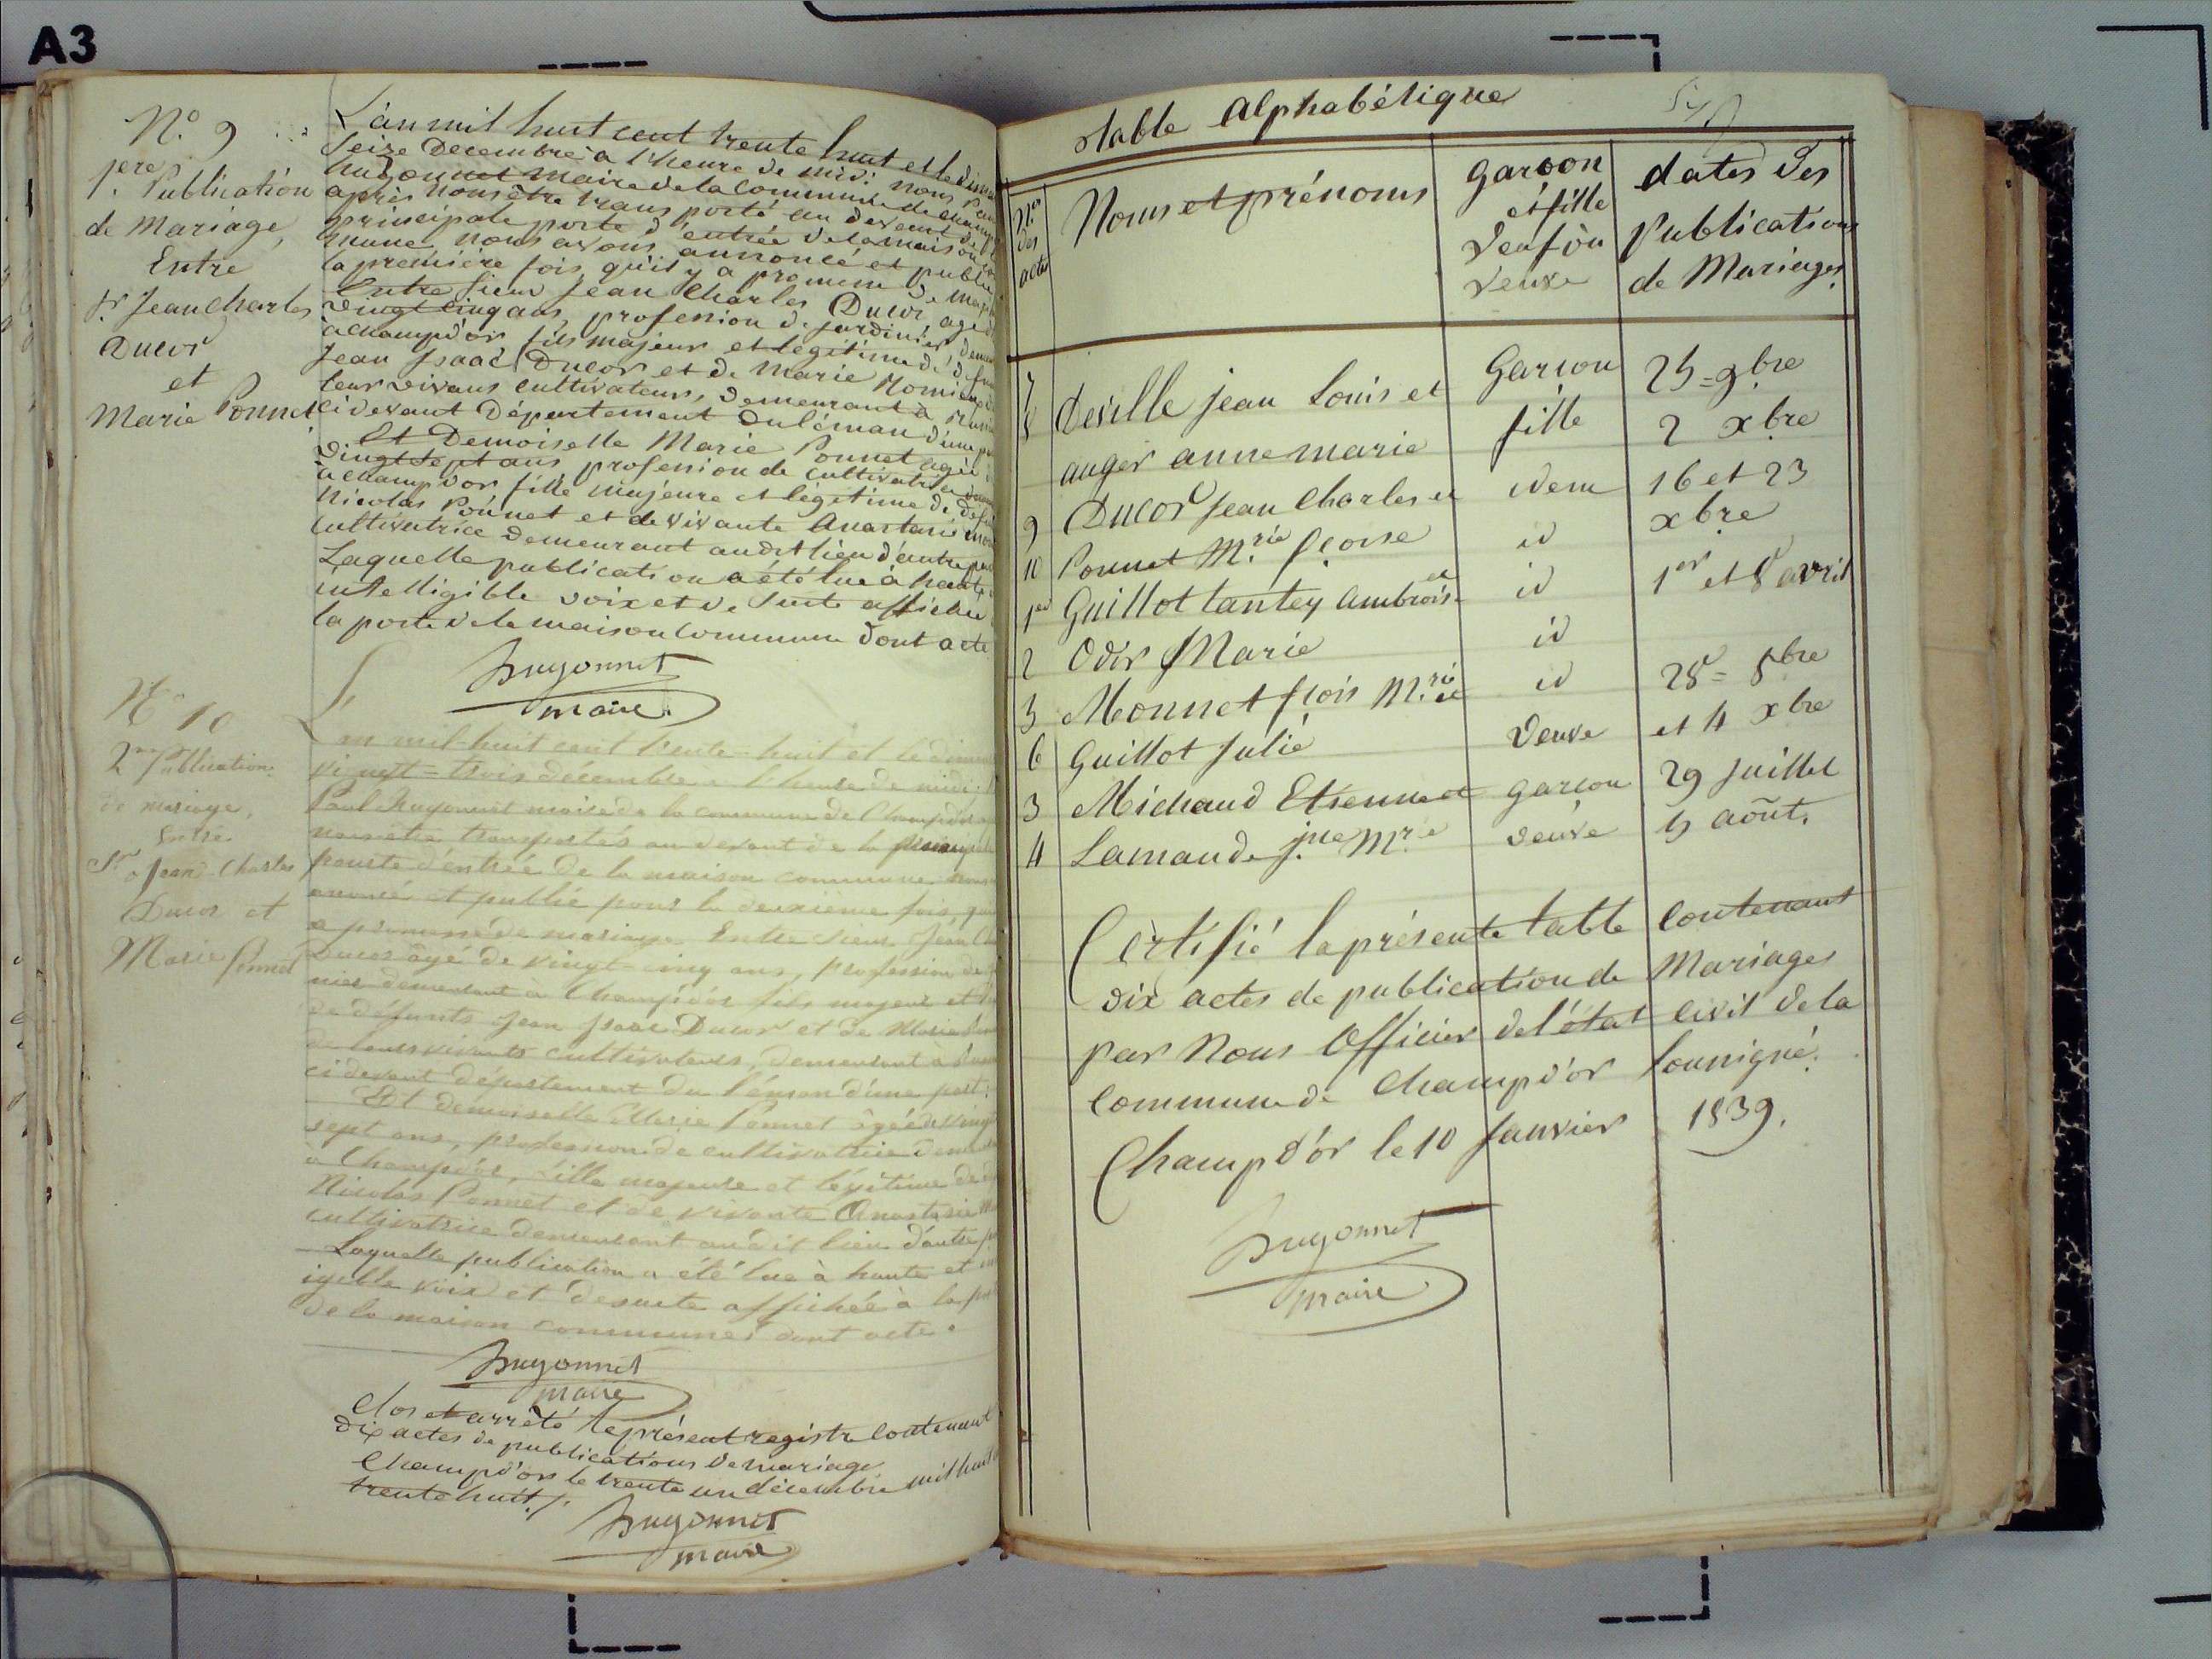 A3
N.o 9
1.ere Publication
de Mariage,
Entre
S.r Jean Charles
Ducor
et
Marie Ponnet
L'an mil huit cent trente huit et le
Seize Decembre à l'heure de midi nous
hugonnet maire de la commune de
après nous être transporté au devant de
principale porte d'entrée de la maison
mune nous avons annoncé et publié
la première fois, qu'il y a promesse de
Entre sieur Jean Charles Ducor agé
vingt cinq ans, profession de jardinier
à Champd'or fils majeur et légitime de
Jean Isaac Ducor et de Marie
leur vivans cultivateurs, demeurant à
cidevant Département du léman d'une
Et Demoiselle Marie Ponnet agée
vingt sept ans, profession de cultivatrice
à Champd'or fille majeure et légitime de
Nicolas Ponnet et de vivante Anastasie
cultivatrice demeurant audit lieu d'autre
Laquelle publication a été lue à haute
intelligible voix et de suite affichée
la porte de la maison commune dont acte
hugonnet
maire
N.o 10
2.me Publication
de mariage,
Entre
S.r Jean-Charles
Ducor et
Marie Ponnet
L'an mil-huit cent trente-huit et le
vinght=trois décembre à l'heure de midi
Paul hugonnet maire de la commune de Champdor
nous être transportés au devant de la
porte d'entrée de la maison commune nous
anoncé et publié pour la deuxième fois,
a promesse de mariage. Entre sieur Jean
Ducor âgé de vingt-cinq ans, profession de
nier demeurant à Champd'or fils majeur et
de défunts Jean Isaac Ducor et de Marie
de leurs vivants cultivateurs, demeurant à
cidevant département du léman d'une part;
Et demoiselle Marie Ponnet âgée de vingt
sept ans, profession de cultivatrice
à Champd'or, fille majeure et légitime de
Nicolas Ponnet et de vivante Anastasie
cultivatrice demeurant audit lieu d'autre
Laquelle publication a été lue à haute et
igible voix et desuite affichée à la
de la maison commune, dont acte.
hugonnet
maire
Clos et arrêté le présent registre contenant
dix actes de publications de mariage
Champd'or le trente un décembre mil huit
trente huit
hugonnet
maire
table Alphabétique
N.os des actes
Noms et prénoms
garçon et fille veuf ou veuve
dates des Publications de Mariages
7 deville jean Louis et Garçon 25=9bre
8 auger anne marie fille 2 xbre
9 Ducor Jean Charles et idem 16 et 23
10 Ponnet M.rie id xbre
1er Guillot tantey Ambroise et id 1er et 8 avril
2 Odir Marie id
3 Monnet fçois M.rie et id 28= 8bre
6 Guillot Julie Veuve et 4 xbre
3 Michaud Etienne et garçon 29 juillet
4 Lamande M.rie veuve 5 août.
Certifié la présente table contenant
dix actes de publication de Mariages
par Nous Officier de l'état civil de la
commune de Champd'or soussigné.
Champd'or le 10 Janvier 1839.
hugonnet
maire